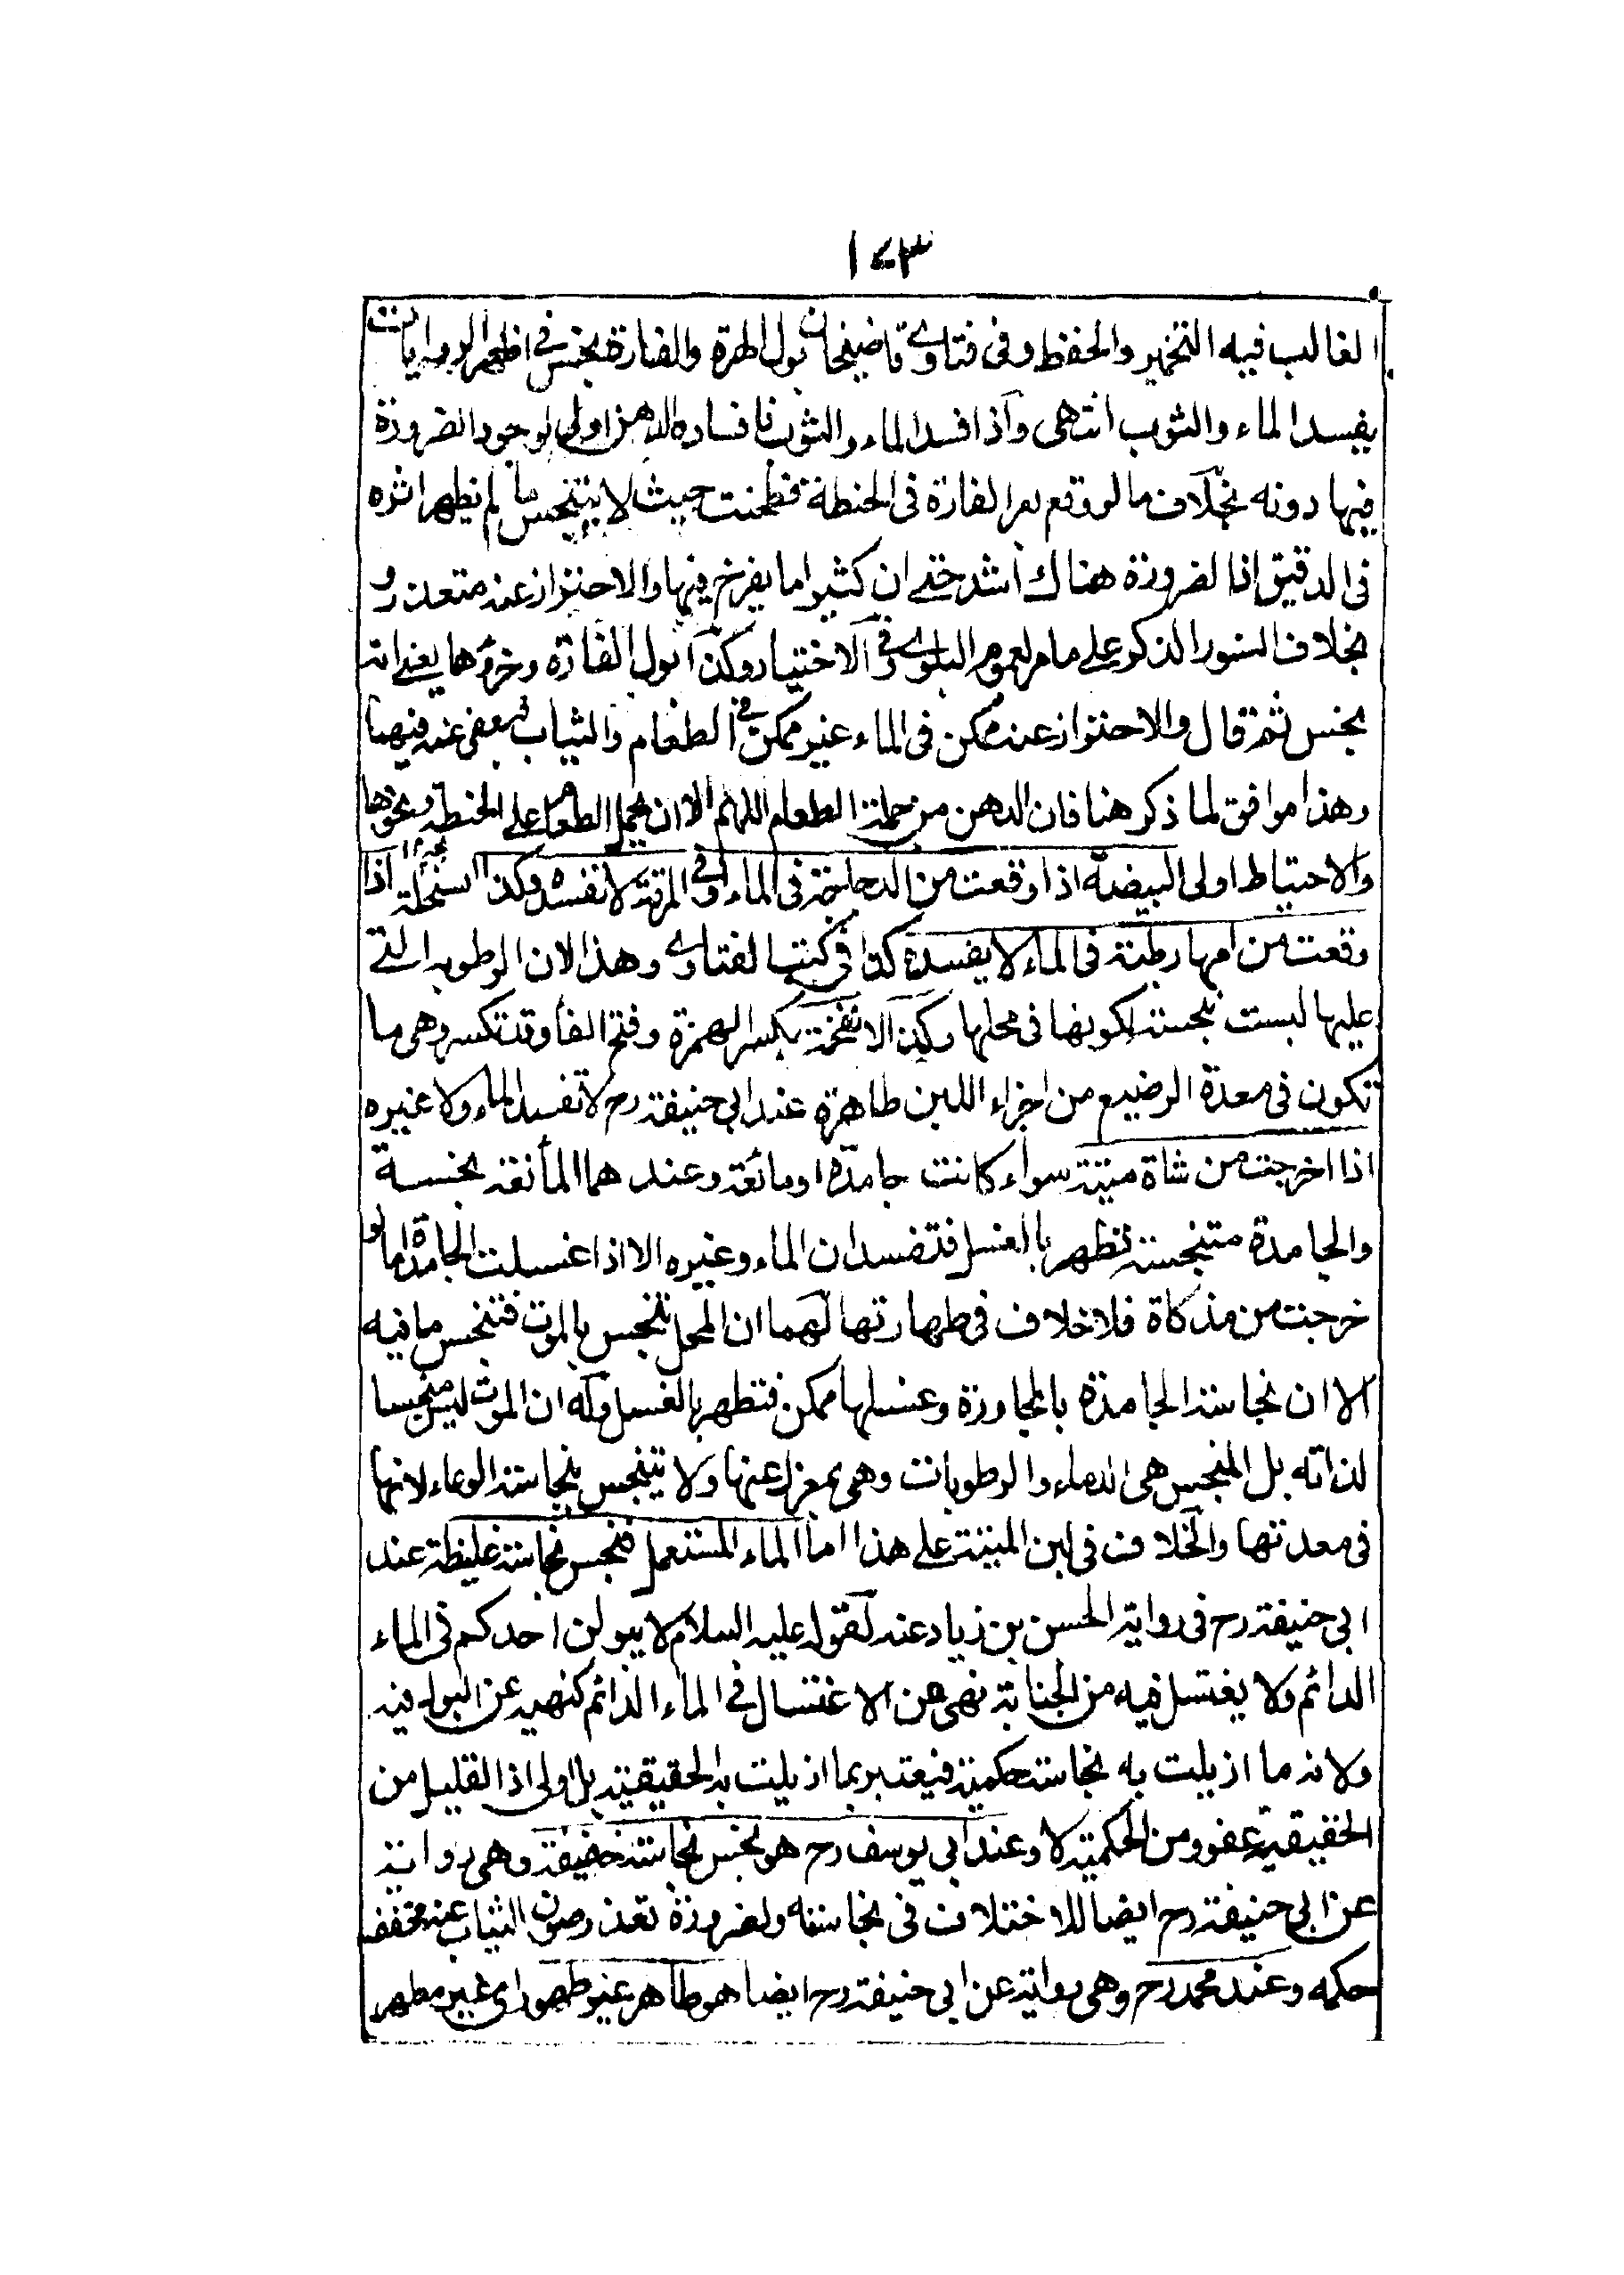 ١٤٣
الغالب فيه التخمير والحفظ وفى فتاوى قاضيخان بول الهرة والفارة نجس فى اظهر الروايات
يفسد الماء والثوب انتهى واذا فسد الماء والثوب فافساده الدهن اولى لوجود الضرورة
فيها دونه بخلاف ما لو وقع بعر الفارة فى الحنطة فطحنت حيث لا يتنجس ما لم يظهر اثره
فى الدقيق اذ الضرورة هناك اشد حتى ان كثيرا ما يفرخ فيها والاحتراز عنه متعذر و
بخلاف السنور المذكور على ما مر لعموم البلوى وفى الاختيار وكذا بول الفارة وخرؤها يعنى انه
نجس ثم قال والاحتراز عنه ممكن فى الماء غير ممكن فى الطعام والثياب فيعفى عنه فيهما
وهذا موافق لما ذكر هنا فان الدهن من جملة الطعام اللهم الا ان يحمل الطعام على الحنطة ونحوها
والاحتياط اولى البيضة اذا وقعت من الدجاجة فى الماء او فى المرقة لا تفسده وكذا السخلة اذا
وقعت من امها رطبة فى الماء لا يفسده كذا فى كتب الفتاوى وهذا لان الرطوبة التى
عليها ليست بنجسة لكونها فى محلها وكذا الانفحة بكسر الهمزة وفتح الفاء وقد تكسر وهى ما
تكون فى معدة الرضيع من اجزاء اللبن طاهرة عند ابى حنيفة رح لا تفسد الماء ولا غيره
اذا اخرجت من شاة ميتة سواء كانت جامدة او مائعة وعندهما المائعة نجسة
والجامدة متنجسة تطهر بالغسل فتفسدان الماء وغيره الا اذا غسلت الجامدة اما لو
خرجت من مذكاة فلا خلاف فى طهارتها لهما ان المحل تنجس بالموت فتنجس ما فيه
الا ان نجاسة الجامدة بالمجاورة وغسلها ممكن فتطهر بالغسل وله ان الموت ليس منجسا
لذاته بل المنجس هى الدماء والرطوبات وهى بمعزل عنها ولا يتنجس بنجاسة الوعاء لانها
فى معدتها والخلاف فى لبن الميتة على هذا اما الماء المستعمل فنجس نجاسة غليظة عند
ابى حنيفة رح فى رواية الحسن بن زياد عنه لقوله عليه السلام لا يبولن احدكم فى الماء
الدائم ولا يغتسل فيه من الجنابة نهى عن الاغتسال فى الماء الدائم كنهيه عن البول فيه
ولانه ما ازيلت به نجاسة حكمية فيعتبر بما ازيلت به الحقيقية بل اولى اذ القليل من
الحقيقية عفو ومن الحكمية لا وعند ابى يوسف رح هو نجس نجاسة خفيفة وهى رواية
عن ابى حنيفة رح ايضا للاختلاف فى نجاسته ولضرورة تعذر صون الثياب عنه مخفف
حكمه وعند محمد رح وهى رواية عن ابى حنيفة رح ايضا هو طاهر غير طهور اى غير مطهر